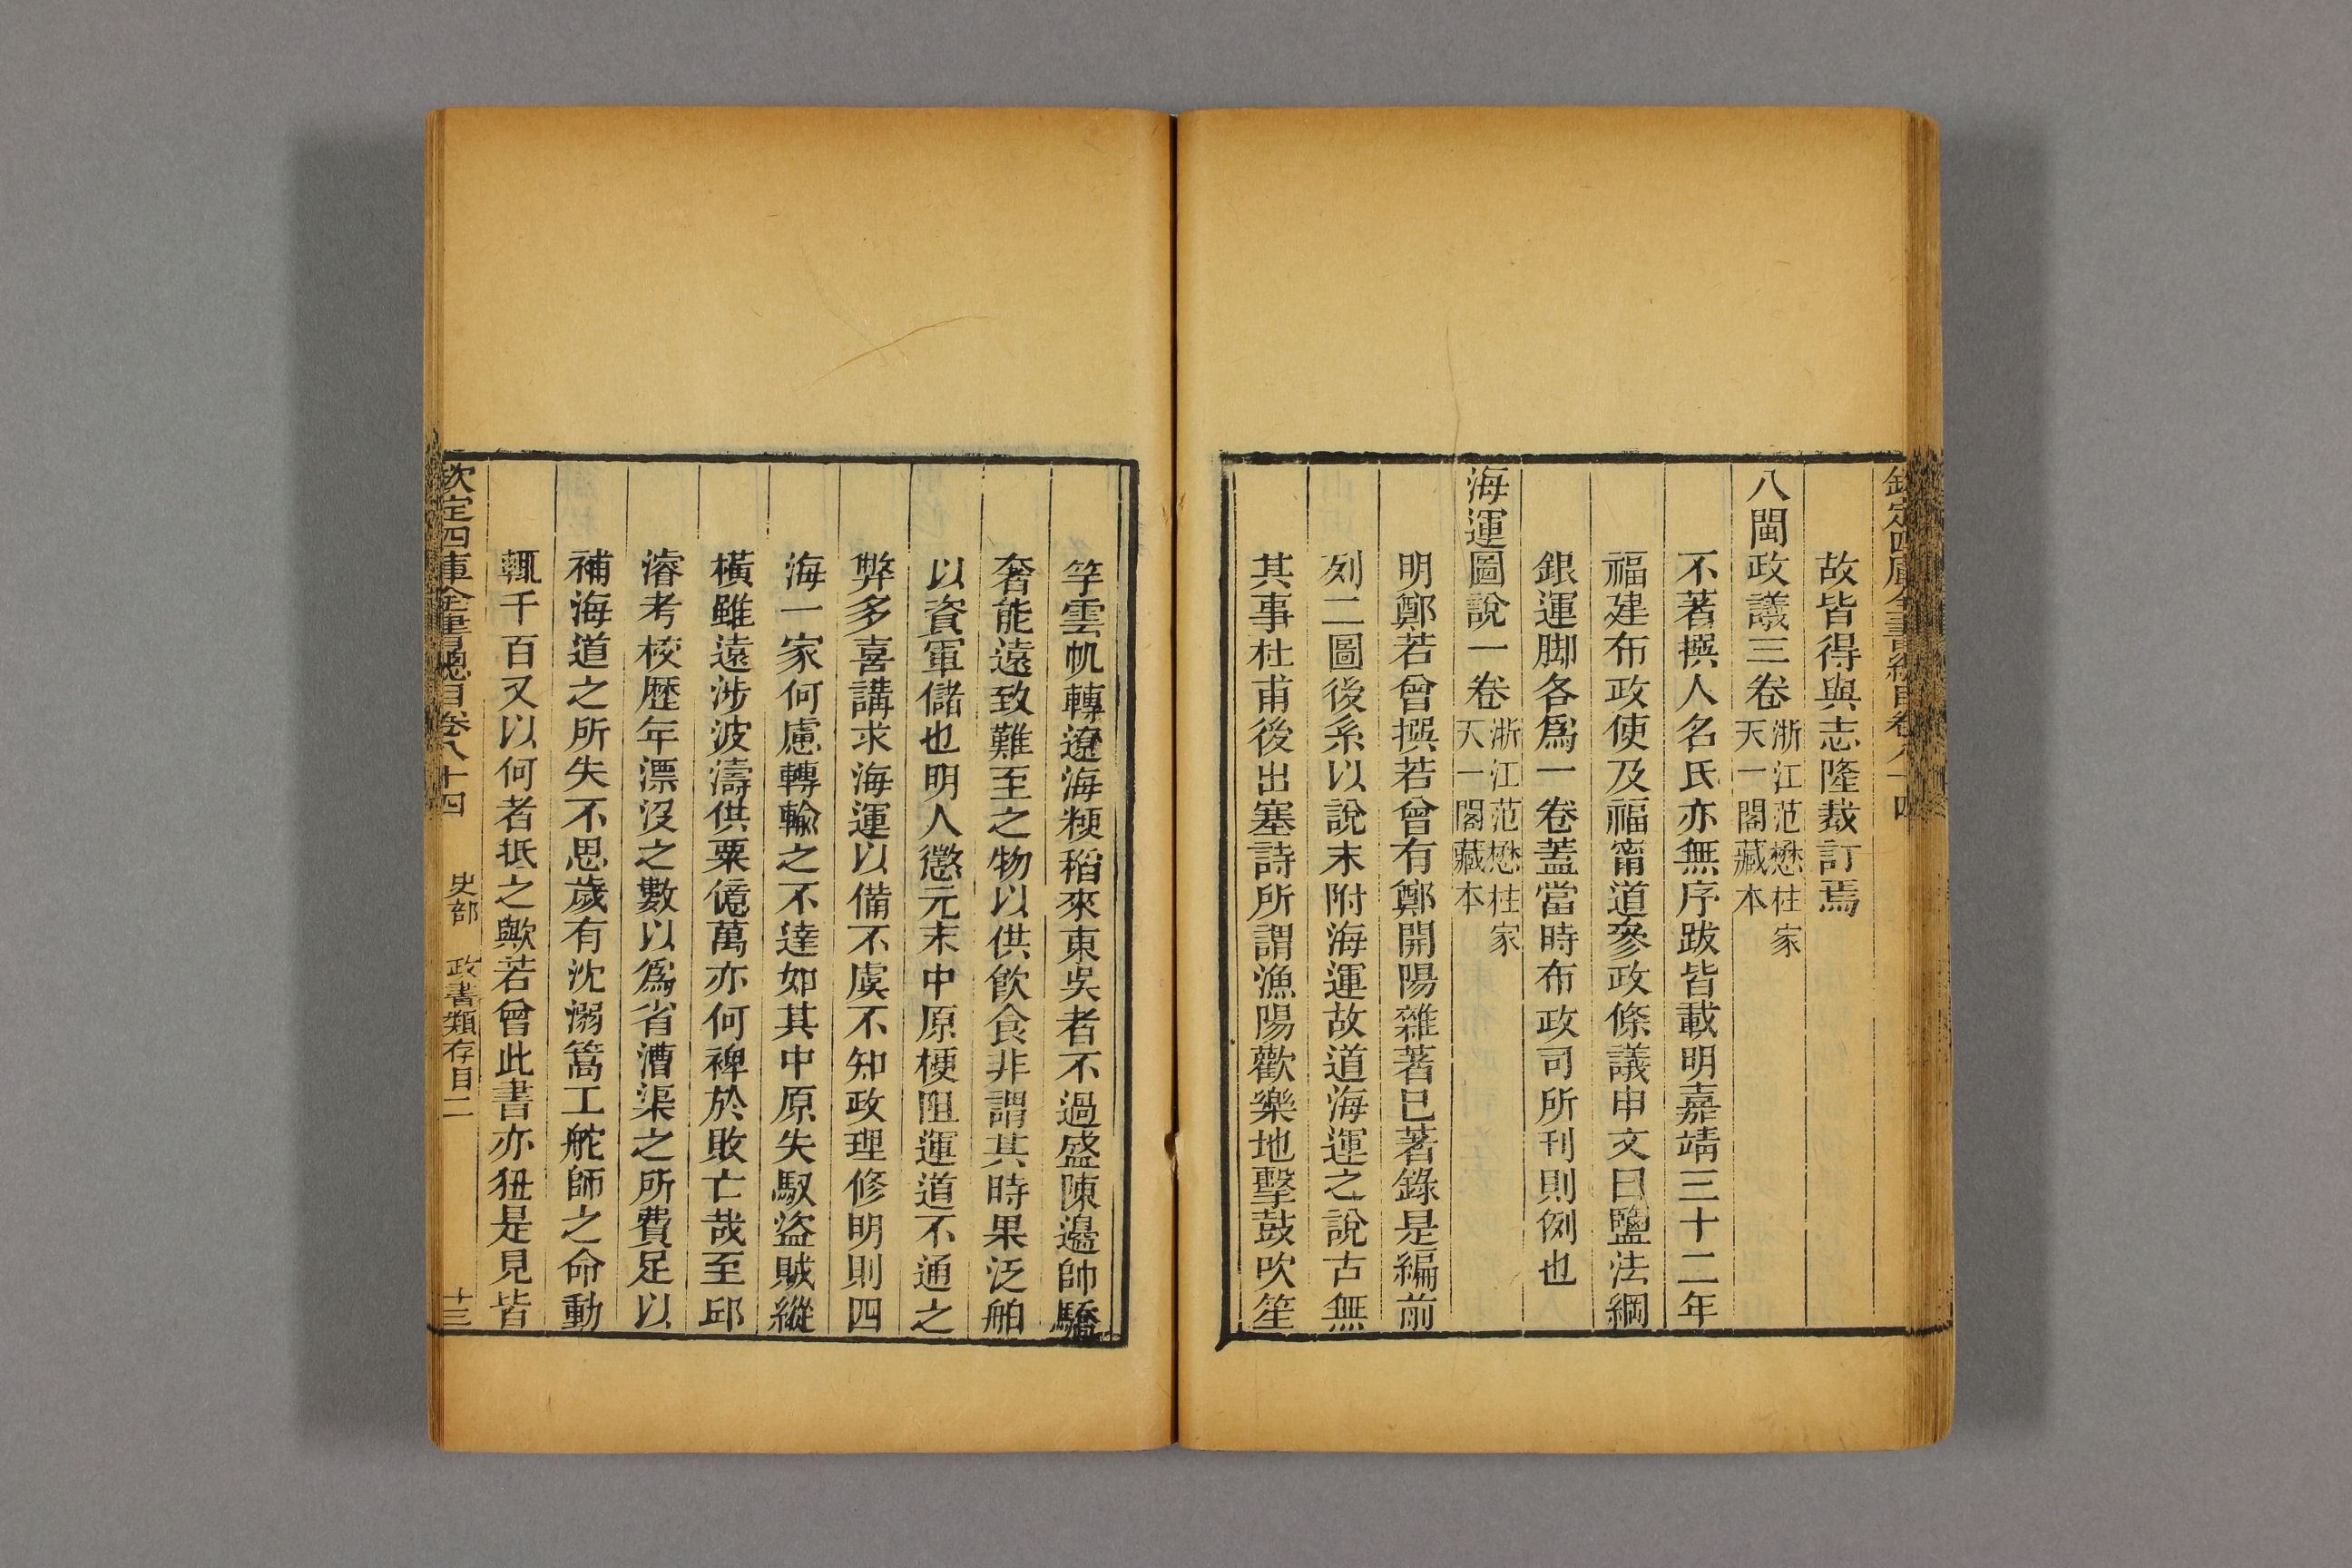 欽定四庫全書總目卷八十四
故皆得與志隆裁訂焉
八閩政議三卷浙江范懋柱家天一閣藏本
不著撰人名氏亦無序跋皆載明嘉靖三十二年
福建布政使及福甯道參政條議申文曰鹽法綱
銀運脚各爲一卷蓋當時布政司所刊則例也
海運圖說一卷浙江范懋柱家天一閣藏本
明鄭若曾撰若曾有鄭開陽雜著已著錄是編前
列二圖後系以說末附海運故道海運之說古無
其事杜甫後出塞詩所謂漁陽歡樂地擊鼓吹笙
竽雲帆轉遼海粳稻來東吳者不過盛陳邊帥驕
奢能遠致難至之物以供飮食非謂其時果泛舶
以資軍儲也明人懲元末中原梗阻運道不通之
弊多喜講求海運以備不虞不知政理修明則四
海一家何慮轉輸之不達如其中原失馭盜賊縱
橫雖遠涉波濤供粟億萬亦何裨於敗亡哉至邱
濬考校歷年漂沒之數以爲省漕渠之所費足以
補海道之所失不思歲有沈溺篙工舵師之命動
輒千百又以何者抵之歟若曾此書亦狃是見皆
欽定四庫全書總目卷八十四　史部　政書類存目二　十三